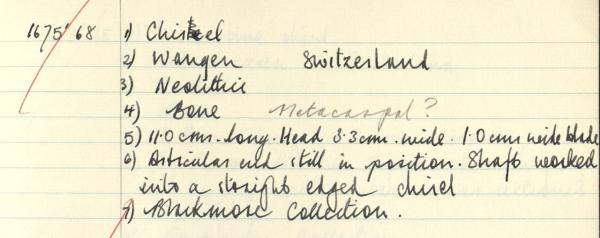 1675'68 1) Chisel
2) Wangen Switzerland
3) Neolithic
4) Bone Metacarpal?
5) 11.0 cms. long. Head 3.3 cm. wide. 1.0 cms wide blade
6) Articular end still in position. Shaft worked
into a straight edged chisel
7) Blackmore Collection.